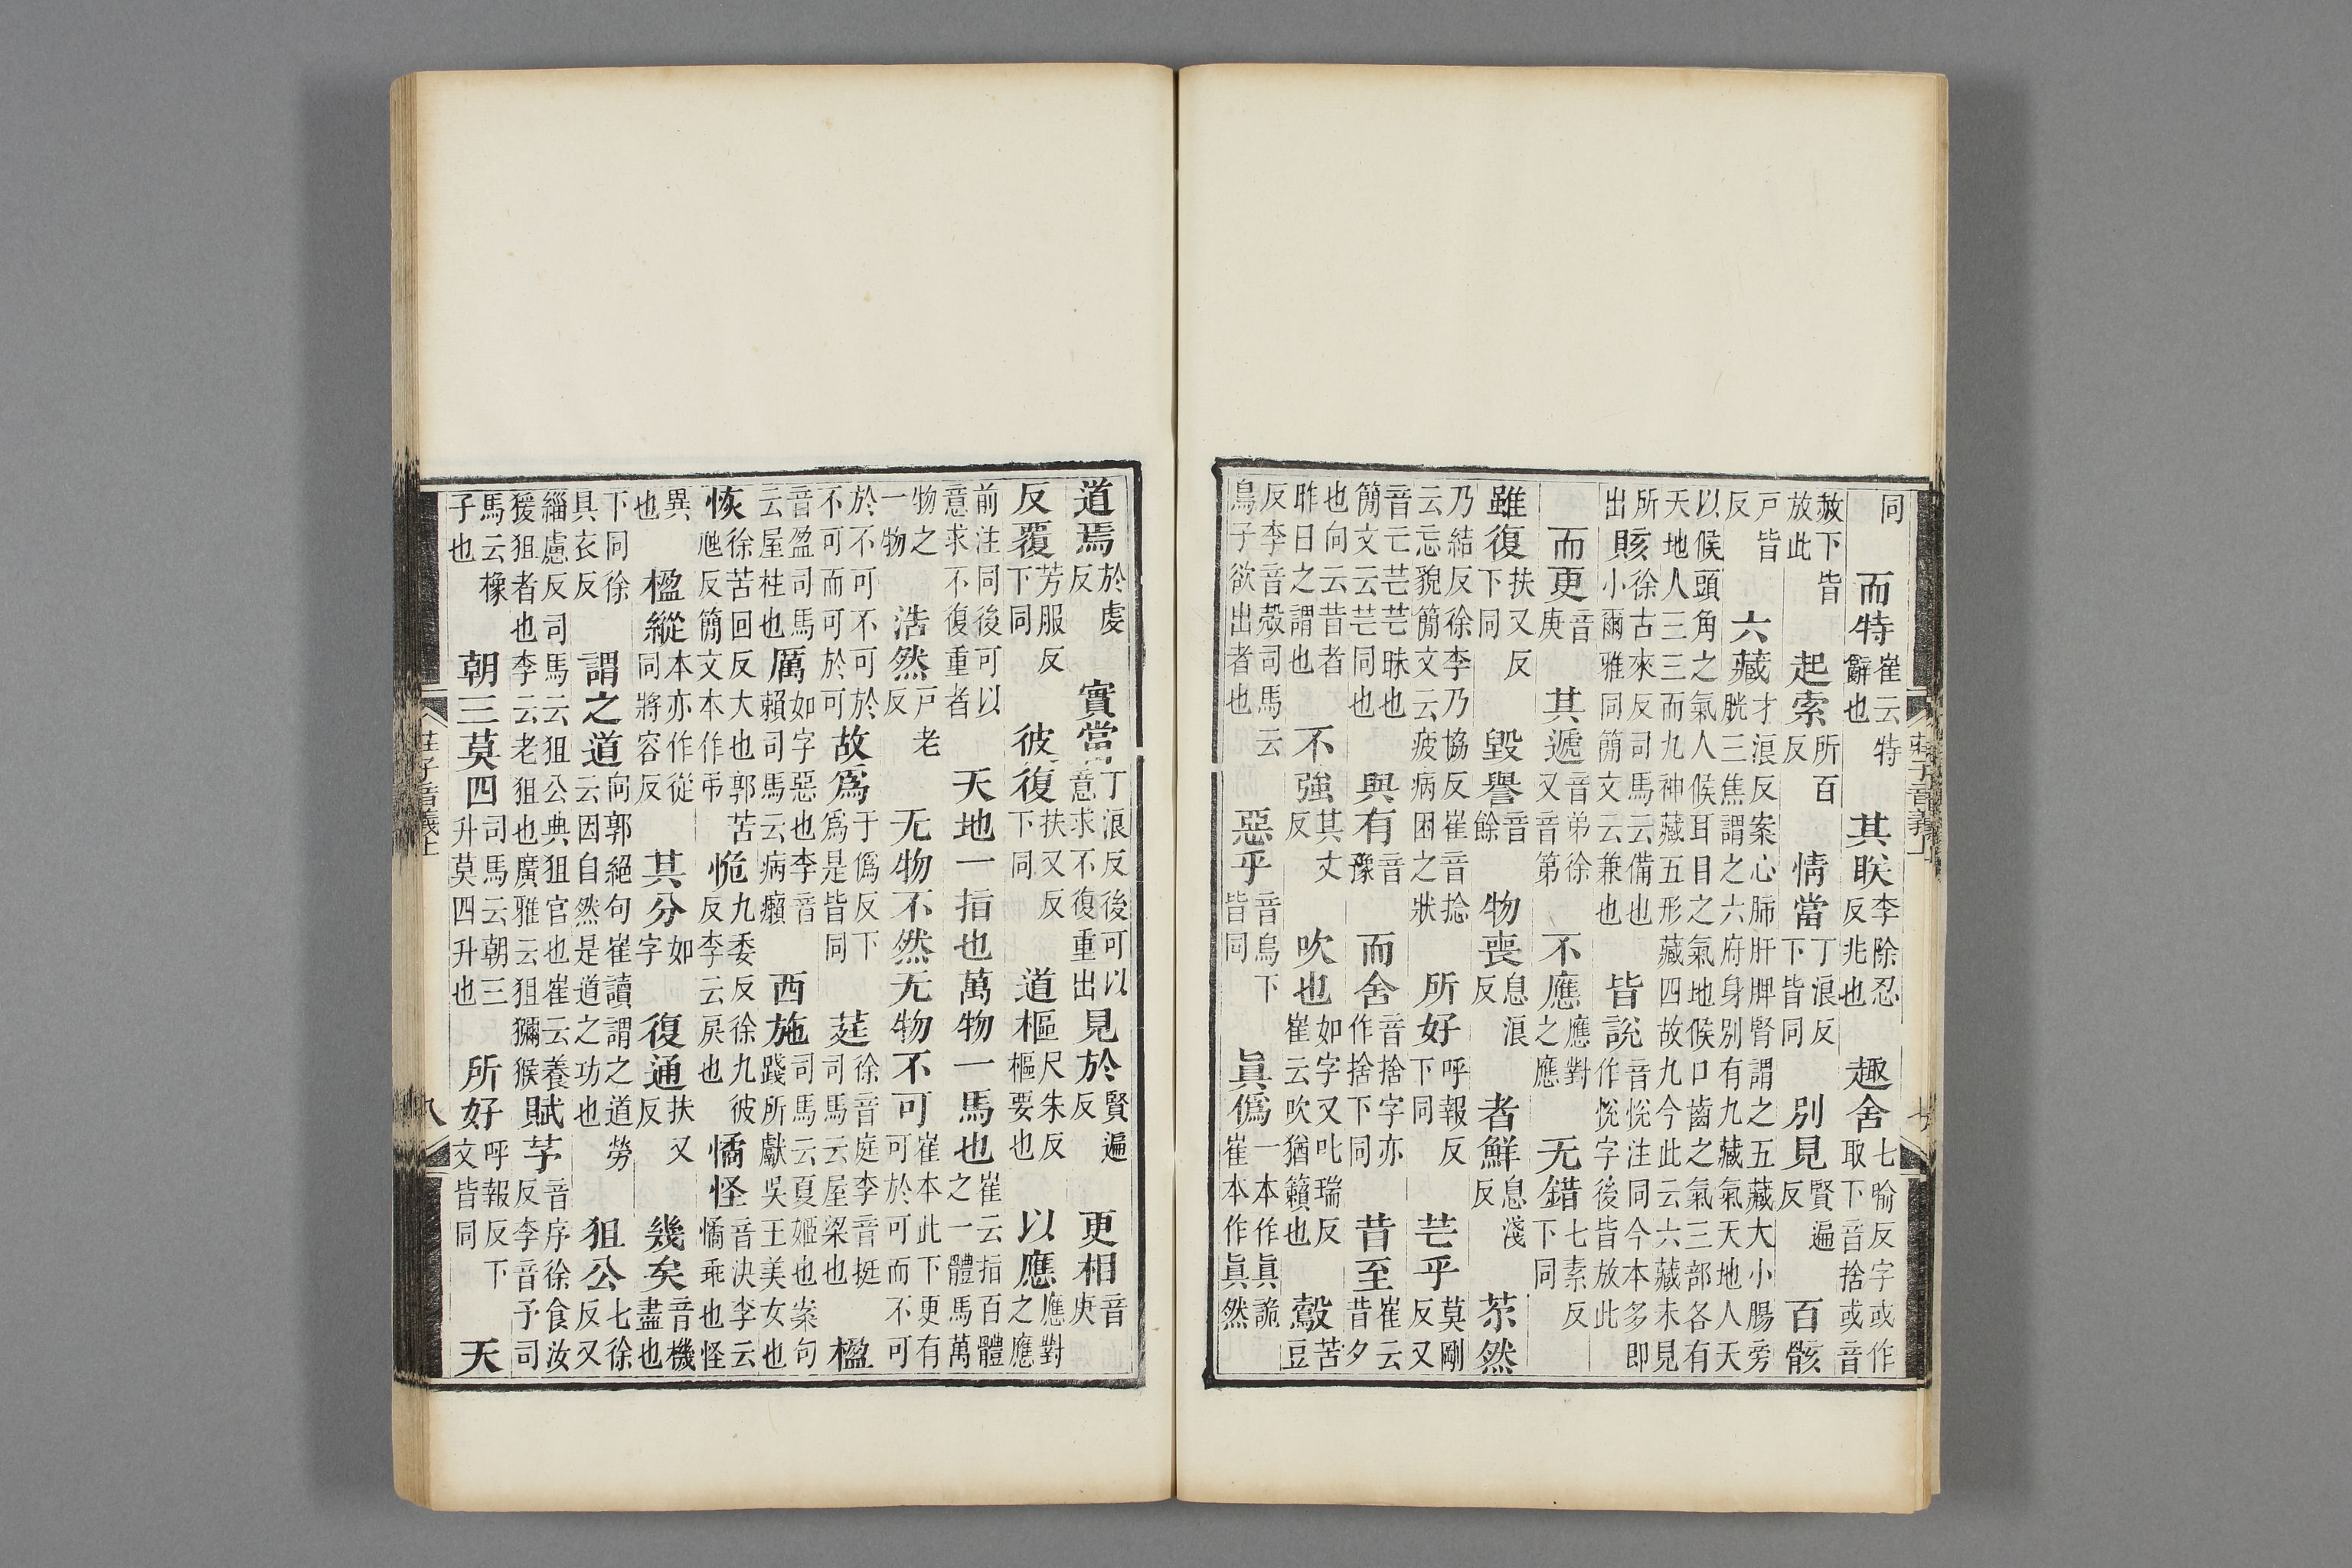 同而特崔云特辭也其眹李除忍反兆也趣舍七喻反字或作取下音捨或音
赦下皆放此起索所百反情當丁浪反下皆同別見賢遍反百骸
戶皆反六藏才浪反案心肺肝脾腎謂之五藏大小腸旁胱三焦謂之六府身別有九藏氣天地人天
以候頭角之氣人候耳目之氣地候口齒之氣三部各有天地人三三而九神藏五形藏四故九今此云六藏未見
所出賅徐古來反司馬云備也小爾雅同簡文云兼也皆說音悅注同今本多即作悅字後皆放此
而更音庚其遞音弟徐又音第不應應對之應无錯七素反下同
雖復扶又反下同毀譽音餘物喪息浪反者鮮息淺反苶然
乃結反徐李乃協反崔音捻云忘貌簡文云疲病困之狀所好呼報反下同芒乎莫剛反又
音亡芒芒昧也簡文云芒同也與有音豫而舍音捨字亦作捨下同昔至崔云昔夕
也向云昔者昨日之謂也不強其丈反吹也如字又叱瑞反崔云吹猶籟也鷇苦豆
反李音殼司馬云鳥子欲出者也惡乎音烏下皆同眞僞一本作眞詭崔本作眞然
莊子音義上
七
道焉於虔反實當丁浪反後可以意求不復重出見於賢遍反更相音庚
反覆芳服反下同彼復扶又反下同道樞尺朱反樞要也以應應對之應
前注同後可以意求不復重者天地一指也萬物一馬也崔云指百體之一體馬萬
物之一物浩然戶老反无物不然无物不可崔本此下更有可於可而不可
於不可不可於不可而可於可故爲于僞反下爲是皆同莛徐音庭李音挺司馬云屋梁也楹
音盈司馬云屋柱也厲如字惡也李音賴司馬云病癩西施司馬云夏姬也案句踐所獻吳王美女也
恢徐苦回反大也郭苦虺反簡文本作弔恑九委反徐九彼反李云戾也憰怪音決李云憰乖也怪
異也楹縱本亦作從同將容反其分如字復通扶又反幾矣音機盡也
下同徐具衣反謂之道向郭絕句崔讀謂之道勞云因自然是道之功也狙公七徐反又
緇慮反司馬云狙公典狙官也崔云養猨狙者也李云老狙也廣雅云狙獼猴賦芧音序徐食汝反李音予司
馬云橡子也朝三莫四司馬云朝三升莫四升也所好呼報反下文皆同天
莊子音義上
八